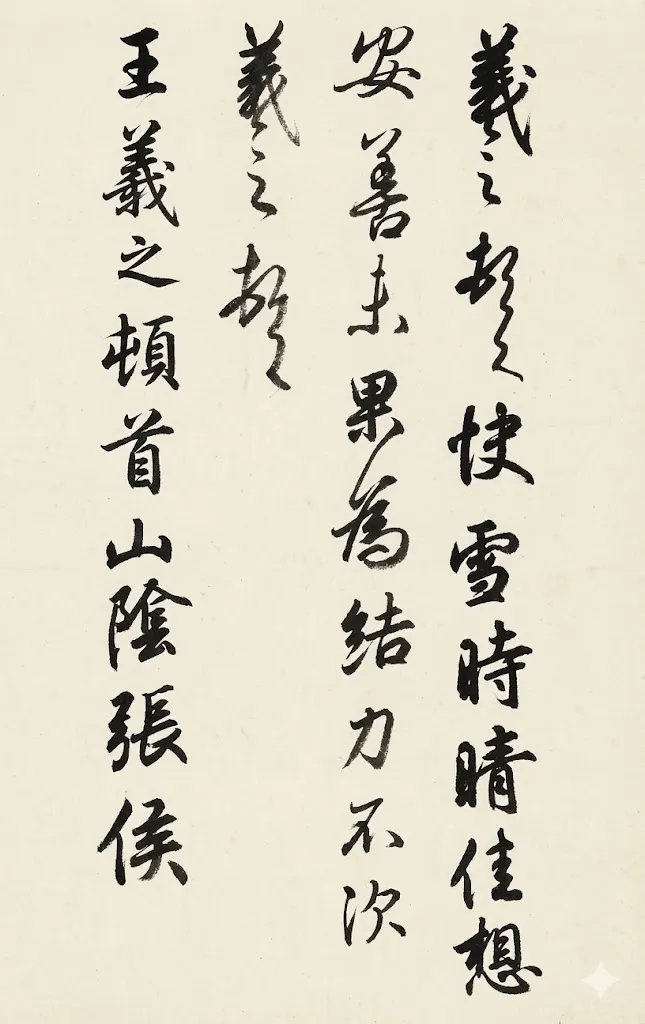 羲之頓首快雪時晴佳想
安善未果為結力不次
羲之頓首
王羲之頓首山陰張侯